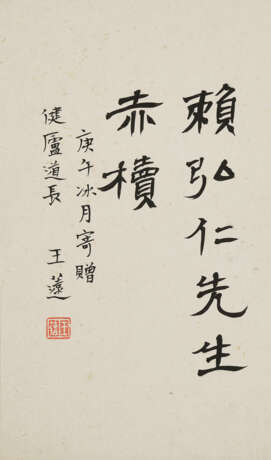 賴弘仁先生
赤櫝
庚午冰月寄贈
健廬道長 王薳